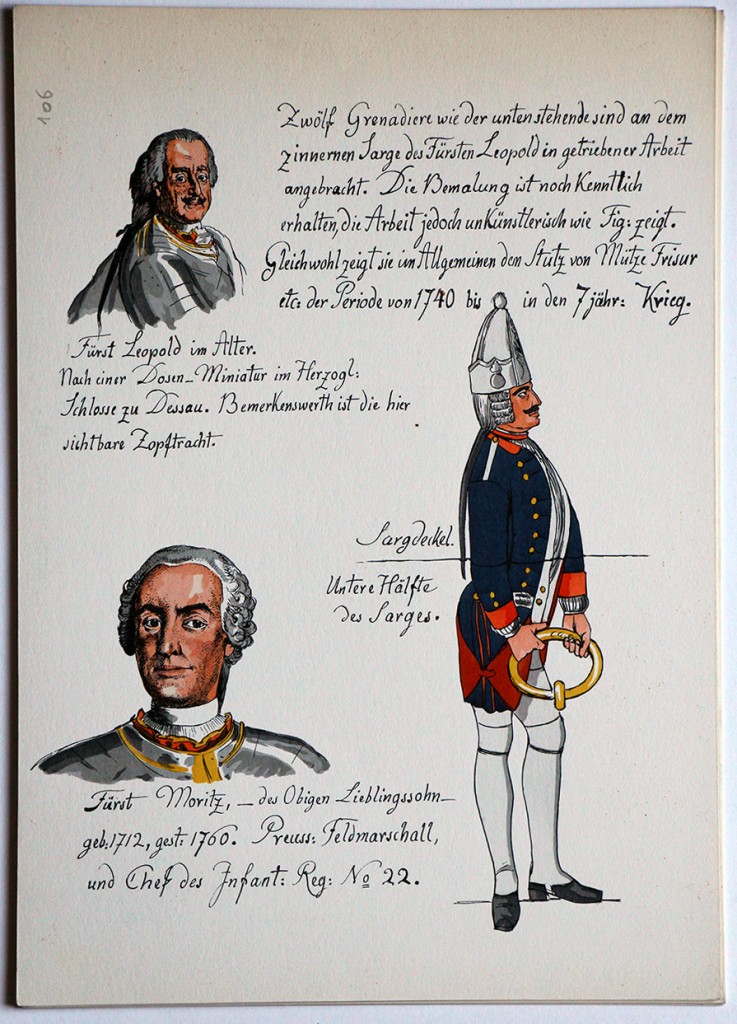 106
Zwölf Grenadiere wie der untenstehende sind an dem
zinnernen Sarge des Fürsten Leopold in getriebener Arbeit
angebracht. Die Bemalung ist noch Kenntlich
erhalten, die Arbeit jedoch unKünstlerisch wie Fig: zeigt.
Gleichwohl zeigt sie im Allgemeinen den Stutz von Mütze Frisur
etc: der Periode von 1740 bis in den 7 jähr: Krieg.
Fürst Leopold im Alter.
Nach einer Dosen-Miniatur im Herzogl:
Schlosse zu Dessau. Bemerkenswerth ist die hier
sichtbare Zopftracht.
Sargdeckel.
Untere Hälfte
des Sarges.
Fürst Moritz, – des Obigen Lieblingssohn –
geb: 1712, gest: 1760. Preuss: Feldmarschall,
und Chef des Infant: Reg: No 22.